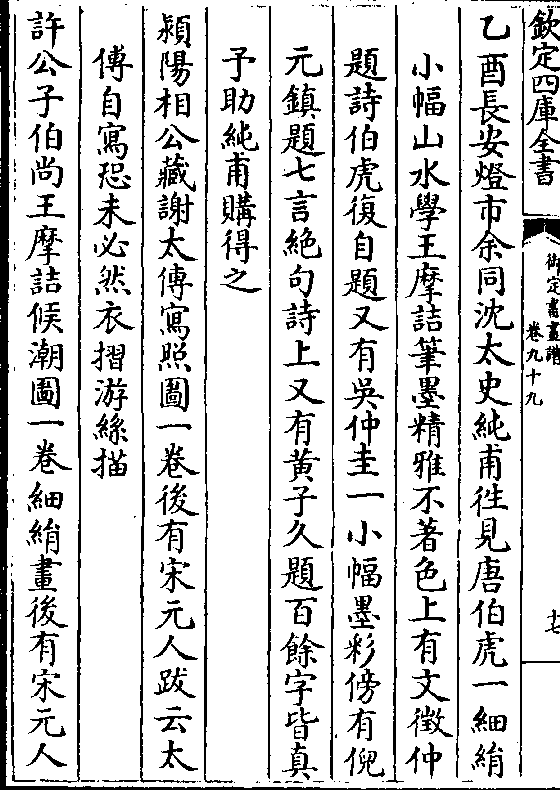 欽定四庫全書
御定書畫譜
卷九十九
十七
乙酉長安燈市余同沈太史純甫徃見唐伯虎一細絹
小幅山水學王摩詰筆墨精雅不著色上有文徵仲
題詩伯虎復自題又有吳仲圭一小幅墨彩傍有倪
元鎮題七言絕句詩上又有黃子久題百餘字皆真
予助純甫購得之
潁陽相公藏謝太傅寫照圖一卷後有宋元人跋云太
傅自寫恐未必然衣摺游絲描
許公子伯尚王摩詰候潮圖一卷細絹畫後有宋元人